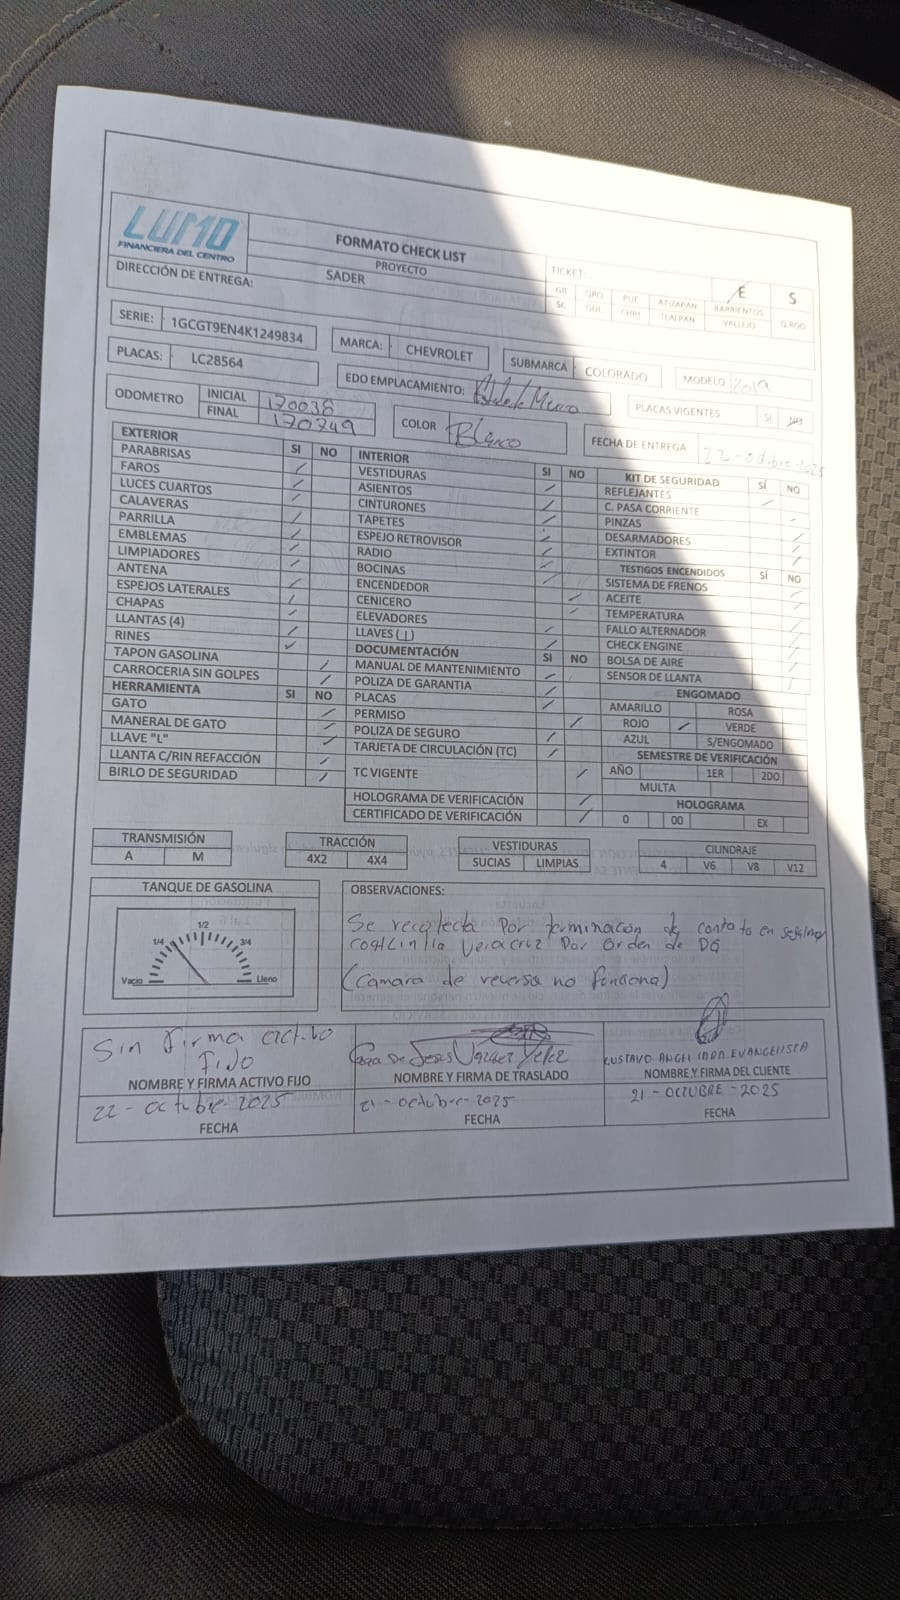 LUMO
FINANCIERA DEL CENTRO
FORMATO CHECK LIST
PROYECTO
SADER
DIRECCIÓN DE ENTREGA:
TICKET:
E S
GTI QRO PUE ATIZAPAN BARRIENTOS
GDL CHIH TLALPAN VALLEJO Q.ROO
SERIE: 1GCGT9EN4K1249834
MARCA: CHEVROLET
SUBMARCA COLORADO
MODELO 2019
PLACAS: LC28564
EDO EMPLACAMIENTO:
PLACAS VIGENTES SI NO
ODOMETRO INICIAL 170038
FINAL 170749
COLOR Blanco
FECHA DE ENTREGA 22-octubre-2025
EXTERIOR SI NO
PARABRISAS
FAROS
LUCES CUARTOS
CALAVERAS
PARRILLA
EMBLEMAS
LIMPIADORES
ANTENA
ESPEJOS LATERALES
CHAPAS
LLANTAS (4)
RINES
TAPON GASOLINA
CARROCERIA SIN GOLPES
HERRAMIENTA SI NO
GATO
MANERAL DE GATO
LLAVE "L"
LLANTA C/RIN REFACCIÓN
BIRLO DE SEGURIDAD
INTERIOR SI NO
VESTIDURAS
ASIENTOS
CINTURONES
TAPETES
ESPEJO RETROVISOR
RADIO
BOCINAS
ENCENDEDOR
CENICERO
ELEVADORES
LLAVES (1)
DOCUMENTACIÓN SI NO
MANUAL DE MANTENIMIENTO
POLIZA DE GARANTIA
PLACAS
PERMISO
POLIZA DE SEGURO
TARJETA DE CIRCULACIÓN (TC)
TC VIGENTE
HOLOGRAMA DE VERIFICACIÓN
CERTIFICADO DE VERIFICACIÓN
KIT DE SEGURIDAD SÍ NO
REFLEJANTES
C. PASA CORRIENTE
PINZAS
DESARMADORES
EXTINTOR
TESTIGOS ENCENDIDOS SÍ NO
SISTEMA DE FRENOS
ACEITE
TEMPERATURA
FALLO ALTERNADOR
CHECK ENGINE
BOLSA DE AIRE
SENSOR DE LLANTA
ENGOMADO
AMARILLO ROSA
ROJO VERDE
AZUL S/ENGOMADO
SEMESTRE DE VERIFICACIÓN
AÑO 1ER 2DO
MULTA
HOLOGRAMA
0 00 EX
TRANSMISIÓN
A M
TRACCIÓN
4X2 4X4
VESTIDURAS
SUCIAS LIMPIAS
CILINDRAJE
4 V6 V8 V12
TANQUE DE GASOLINA
1/4 1/2 3/4
Vacio Lleno
OBSERVACIONES:
Se recolecta Por terminación de contrato en
Veracruz Por orden de DG
(Camara de reversa no funciona)
Sin firma activo
fijo
NOMBRE Y FIRMA ACTIVO FIJO
22-octubre-2025
FECHA
de Jesus Vazquez
NOMBRE Y FIRMA DE TRASLADO
21-octubre-2025
FECHA
GUSTAVO ANGEL EVANGELISTA
NOMBRE Y FIRMA DEL CLIENTE
21-OCTUBRE-2025
FECHA